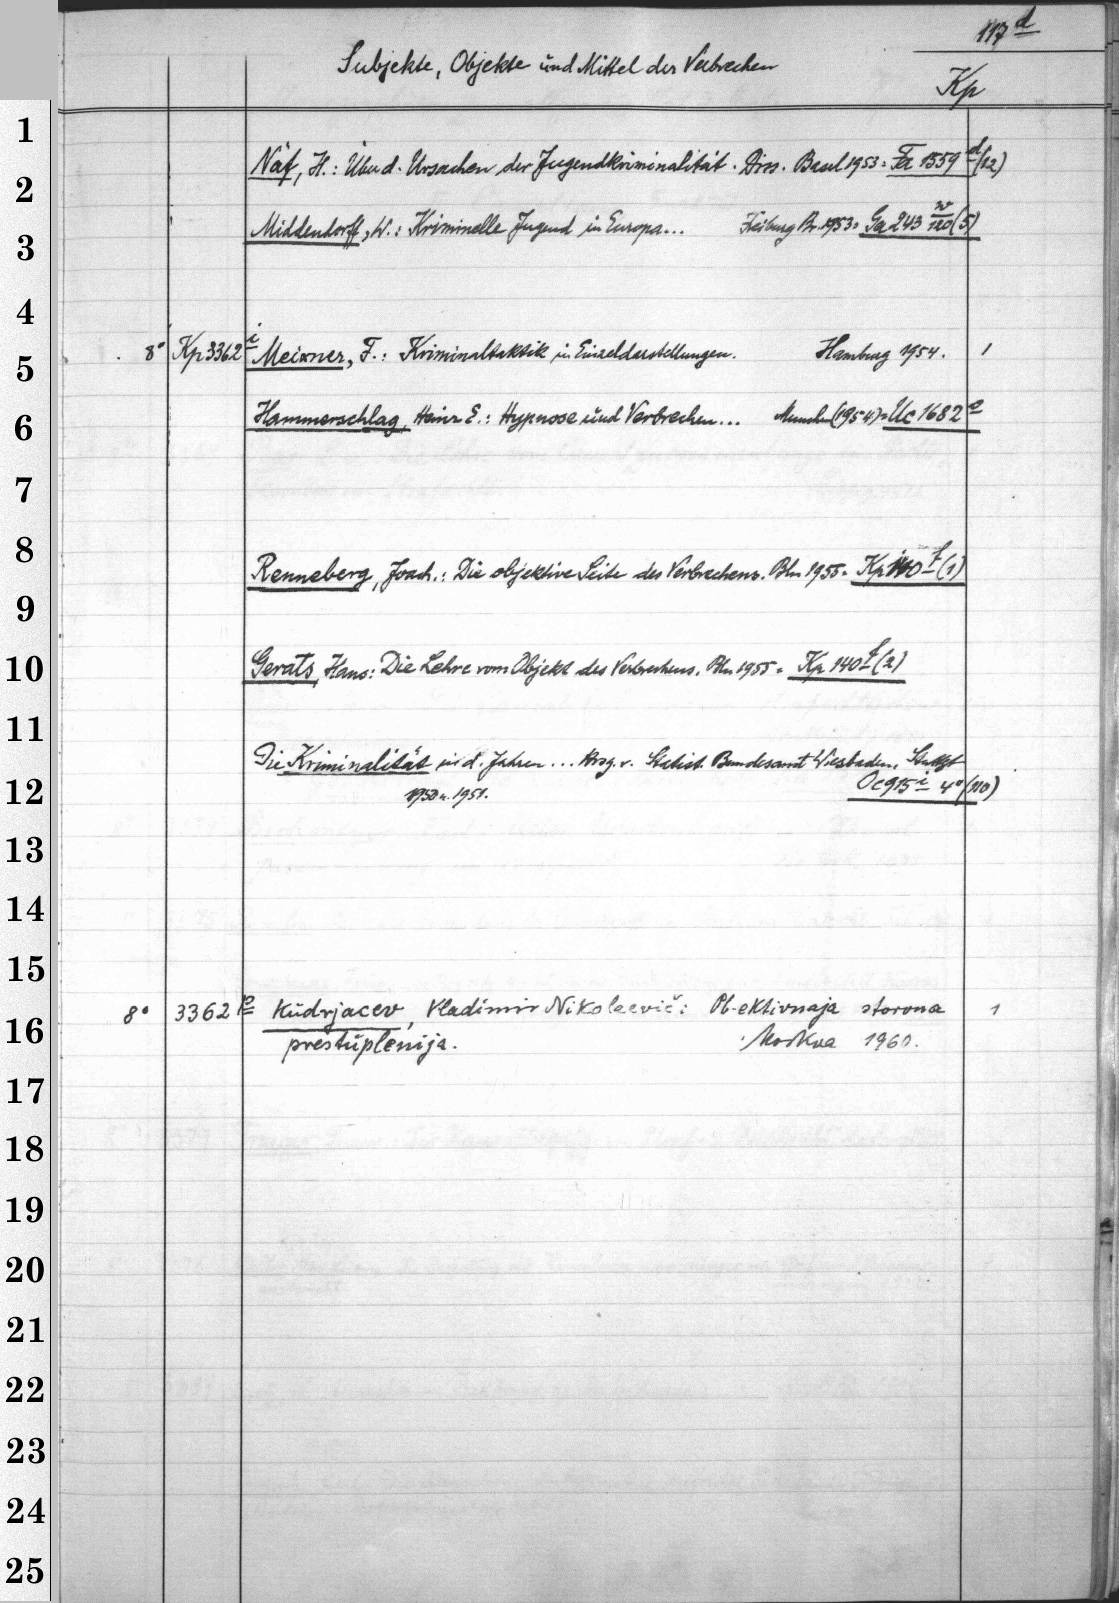 117 d
Subjekte, Objekte und Mittel des Verbrechen
Kp
1
Näf, H.: Über d. Ursachen der Jugendkriminalität. Diss. Basel 1953 = Fa 1559 d (12)
2
Middendorff, W.: Kriminelle Jugend in Europa... Freiburg Br. 1953 = Ga 243 w/120 (5)
3
4
8° Kp 3362 i Meixner, F.: Kriminaltaktik in Einzeldarstellungen. Hamburg 1954. 1
5
Hammerschlag, Heinz E.: Hypnose und Verbrechen... München (1954) = Uc 1682 e
6
7
8
Renneberg, Joach.: Die objektive Seite des Verbrechens. Bln 1955 = Kp 140 f (1)
9
Gerats, Hans: Die Lehre vom Objekt des Verbrechens. Bln 1955 = Kp 140 f (2)
10
11
Die Kriminalität in d. Jahren... Hrsg. v. Statist. Bundesamt Wiesbaden. Stuttgt
1950 u. 1951. Oc 915 i 4° (110)
12
13
14
15
8° 3362 Kudrjacev, Vladimir Nikolaevič: Ob-ektivnaja storona 1
16
prestuplenija. Moskva 1960.
17
18
19
20
21
22
23
24
25